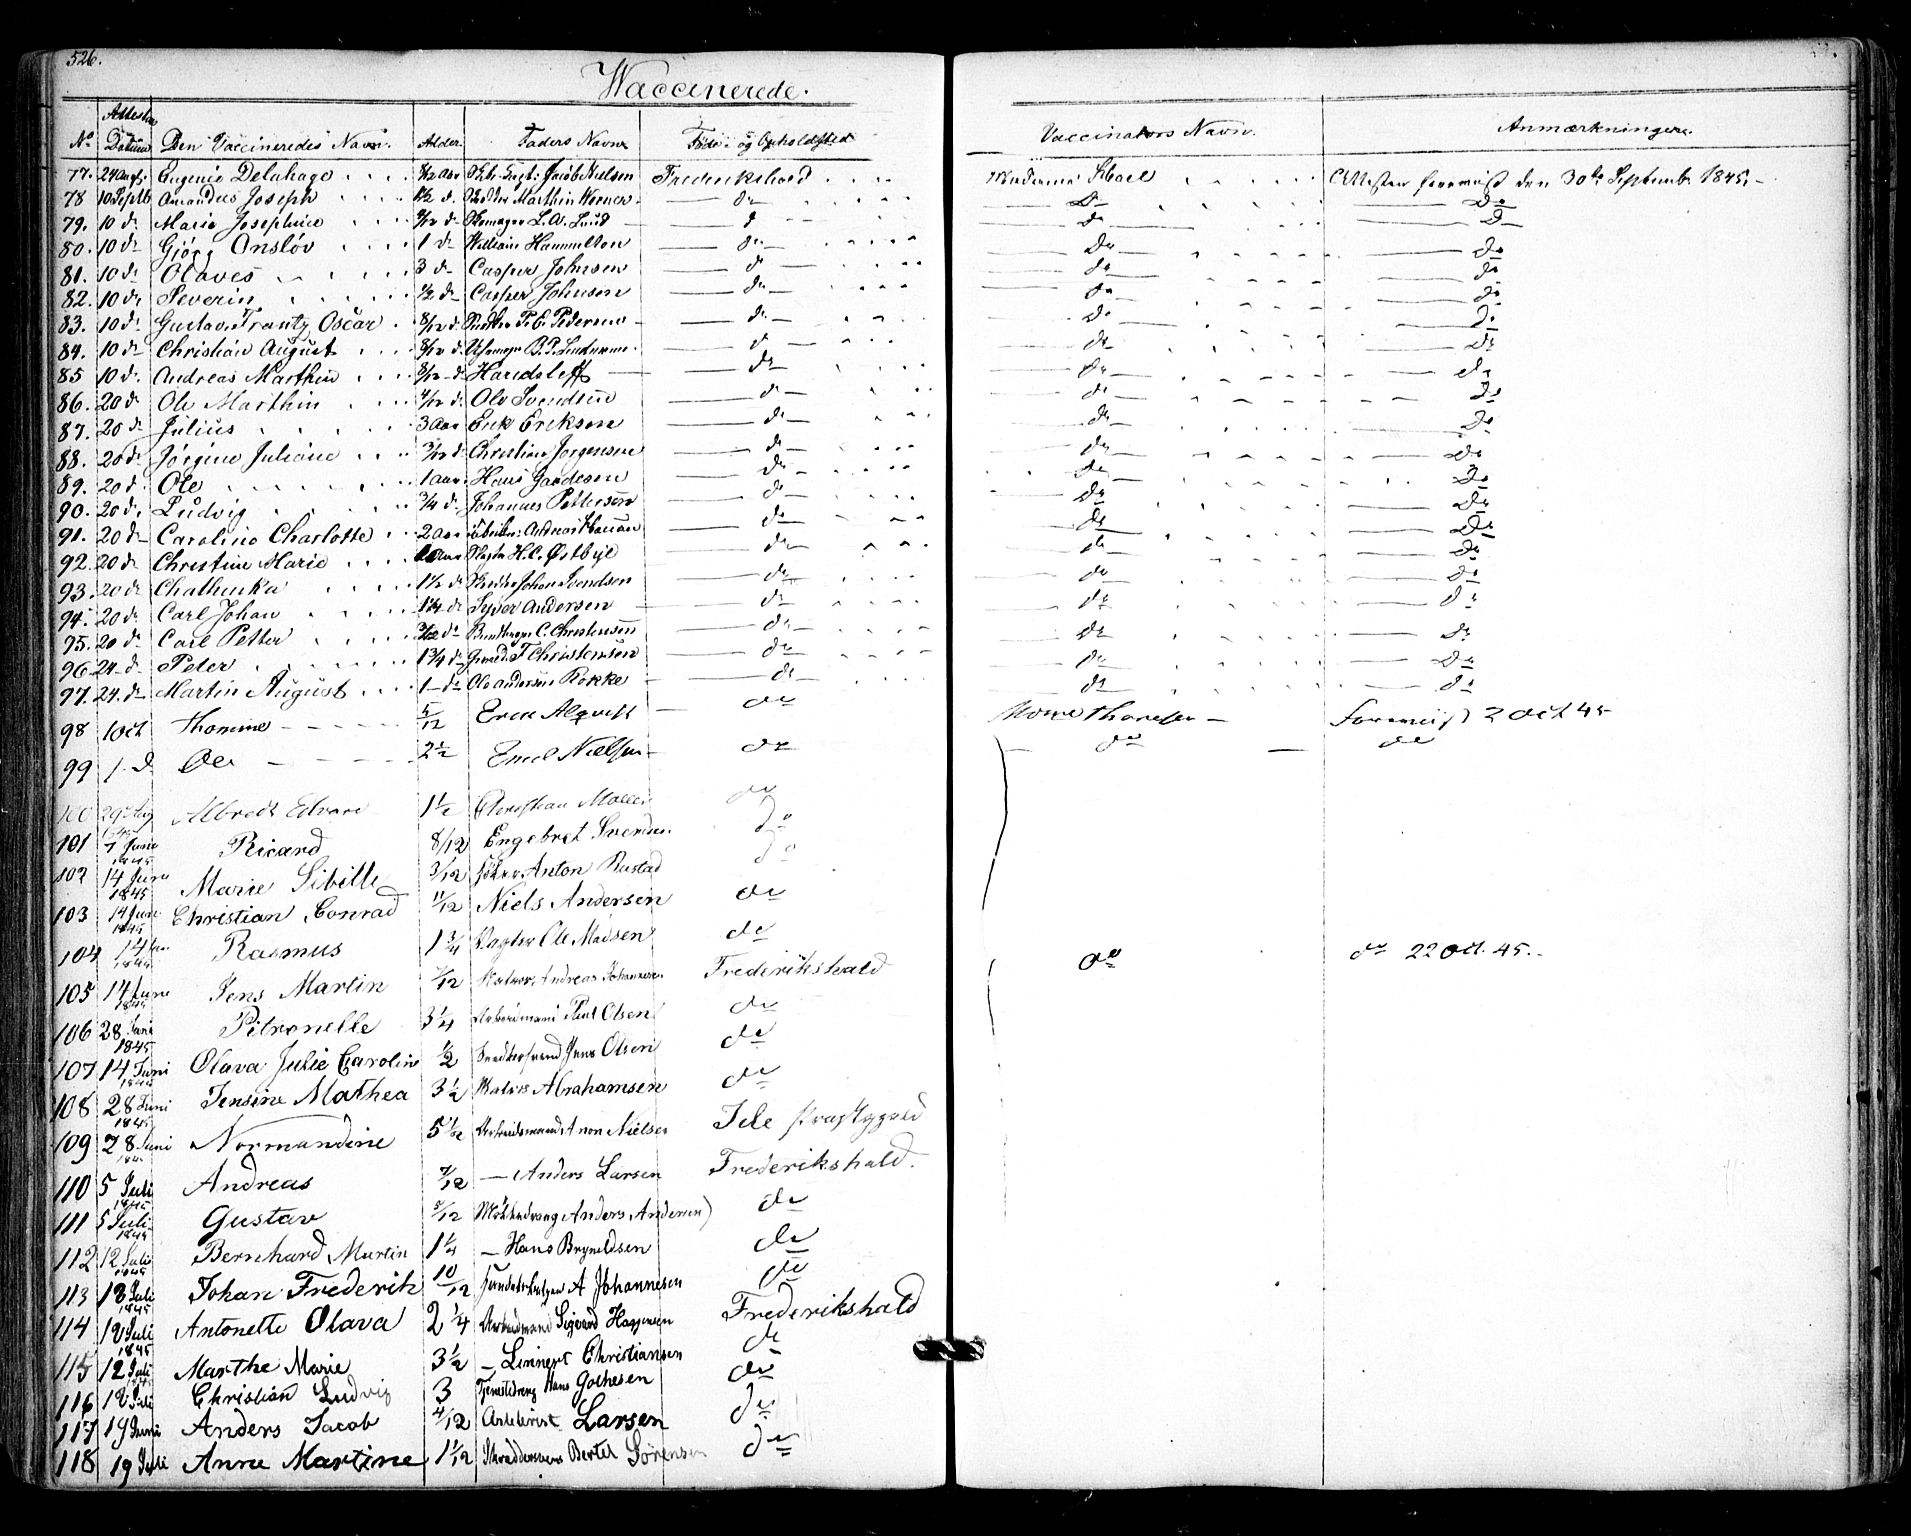 526.
Waccinerede.
No Attestens Datum Den Vaccineredes Navn. Alder. Faders Navn Føde- og Opholdssted Vaccinators Navn. Anmærkninger.
77. 24 Aug. Eugenie Delahage Jacob Nielsen Frederikshald Madame Attesten den 30te Septemb. 1845.
78 10 Septb Amandus Joseph 1½ d. Marthin d Do Do
79. 10 d. Marie Josephine L. A. Lund d d D
80. 10 d. Gjörg Onslöv 1 d William Hammelton do Do do
81. 10 d Olaves 3 d Casper Johnsen d do do
82. 10 d Severin ½ d Casper Johnsen do do do
83. 10 d Gustav Frantz Oscar 8/12 d. P. E. Pedersen do Do do
84. 10 d Christian August 8/12 d. B. P. d do do
85 10 d. Andreas Marthin 8/12 d Haridsleff do do do
86. 20 d Ole Marthin 4/12 d. Ole Svendsen d do do
87. 20 d Julius 3 Aar Erik Eriksen d do do
88. 20 d. Jörgine Juliane 3/12 d Christian Jorgensen d do do
89. 20 d. Ole 1 aar Hans d do Do
90. 20 d. Ludvig ¾ d. Johannes Pettersen d Do Do
91. 20 d Caroline Charlotte 2 Aar Andreas d do Do
92. 20 d Christine Marie Aar H. C. Østbye do do Do
93. 20 d Chathinka 1½ d Johan Svendsen do do do
94. 20 d Carl Johan 1¼ d Syver Andersen d do d
95. 20 d. Carl Petter d. C. Christensen do do do
96 24 d. Peter 1¾ d T. Christensen do do do
97. 24. d Martin August 1 d Ole Andersen Rokke d do do
98 1 Oct Thomine 5/12 Eric Alqvist do Mome Thoresen 2 Oct 45
99 1. d. Ole 2½ Emil Nielsen do do do
100 29 Aug 1845 Albredt Edvard 1½ Christian Moller do
101 7 Juni 1845 Ricard 8/12 Engebret Svendsen do
102 14 Juni 1845 Marie Sibille 3/12 Anton Rustad do
103 14 Juni 1845 Christian Conrad 11/12 Niels Andersen do
104 14 1845 Rasmus 1¾ Vægter Ole Madsen do
105 14 June 1845 Jens Martin 7/12 Andreas Johannesen Frederikshald do do 22 Oct. 45.
106 28 Juni 1845 Pitronelle 3¼ Arbeidsmand Paul Olsen do
107 14 Juni 1845 Olava Julie Caroline ½ Jens Olsen do
108 28 Juni 1845 Jensine Mathea 3½ Abrahamsen do
109 28 Juni 1845 Normandine 5½ Arbeidsmand Anon Nielsen Ide Præstegjeld
110 5 Juli 1845 Andreas 7/12 — Anders Larsen Frederikshald.
111 5 Juli 1845 Gustav 5/12 Anders Andersen do
112 12 Juli 1845 Bernhard Martin 1¼ — Hans Bryneldsen do
113 12 Juli 1845 Johan Frederik 10/12 A Johannesen do
114 12 Juli 1845 Antonette Olava 2¼ Arbeidsmand Sigvard Frederikshald
115 12 Juli 1845 Marthe Marie 3½ — Linnert Christiansen do
116 12 Juli Christian Ludvig 3 Hans Gothesen do
117 19 Juni Anders Jacob 4/12 Larsen do
118 19 Juli Anne Martine 1 1/12 Bertel Sørensen do